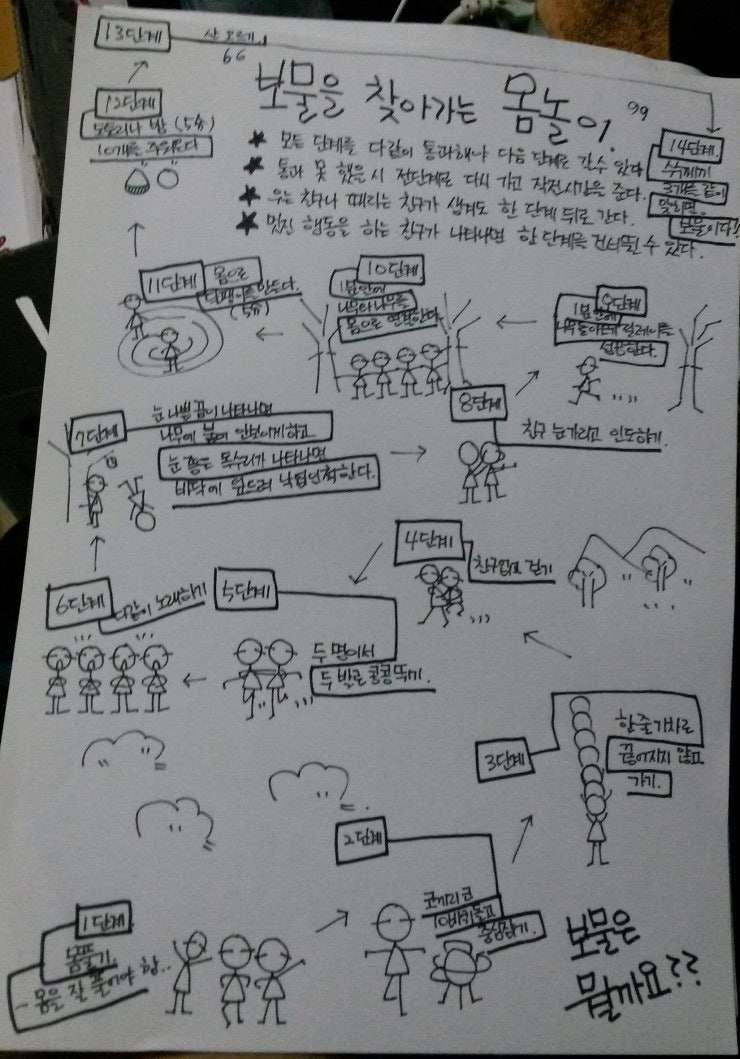 보물을 찾아가는 몸놀이.
★ 모든 단계를 다같이 통과해야 다음 단계로 갈 수 있다
★ 통과 못 했을 시 전단계로 다시 가고 작전시간을 준다.
★ 우는 친구나 때리는 친구가 생겨도 한 단계 뒤로 간다.
★ 멋진 행동을 하는 친구가 나타나면 한 단계를 건너뛸 수 있다.
1단계
몸풀기
- 몸을 잘 풀어야 함..
2단계
코끼리코
10바퀴돌고
중심잡기.
3단계
한줄기차로
끊어지지 않고
가기.
4단계
친구업고 걷기
5단계
두 명이서
두 발로 콩콩뛰기.
6단계
다같이 노래하기
7단계
눈 나쁜 곰이 나타나면
나무에 붙어 안보이게하고
눈 좋은 독수리가 나타나면
바닥에 엎드려 낙엽인척한다.
8단계
친구 눈가리고 인도하기.
9단계
1분안에
성공한다.
10단계
1분안에
나무와나무를
몸으로 연결한다.
11단계
몸으로
달팽이를 만든다.
(5分)
12단계
도토리나 밤 (5分)
10개를 주워온다
13단계
산 오르기.
14단계
수수께끼
3개를 같이
맞히면
보물이다!!
보물은
뭘까요??